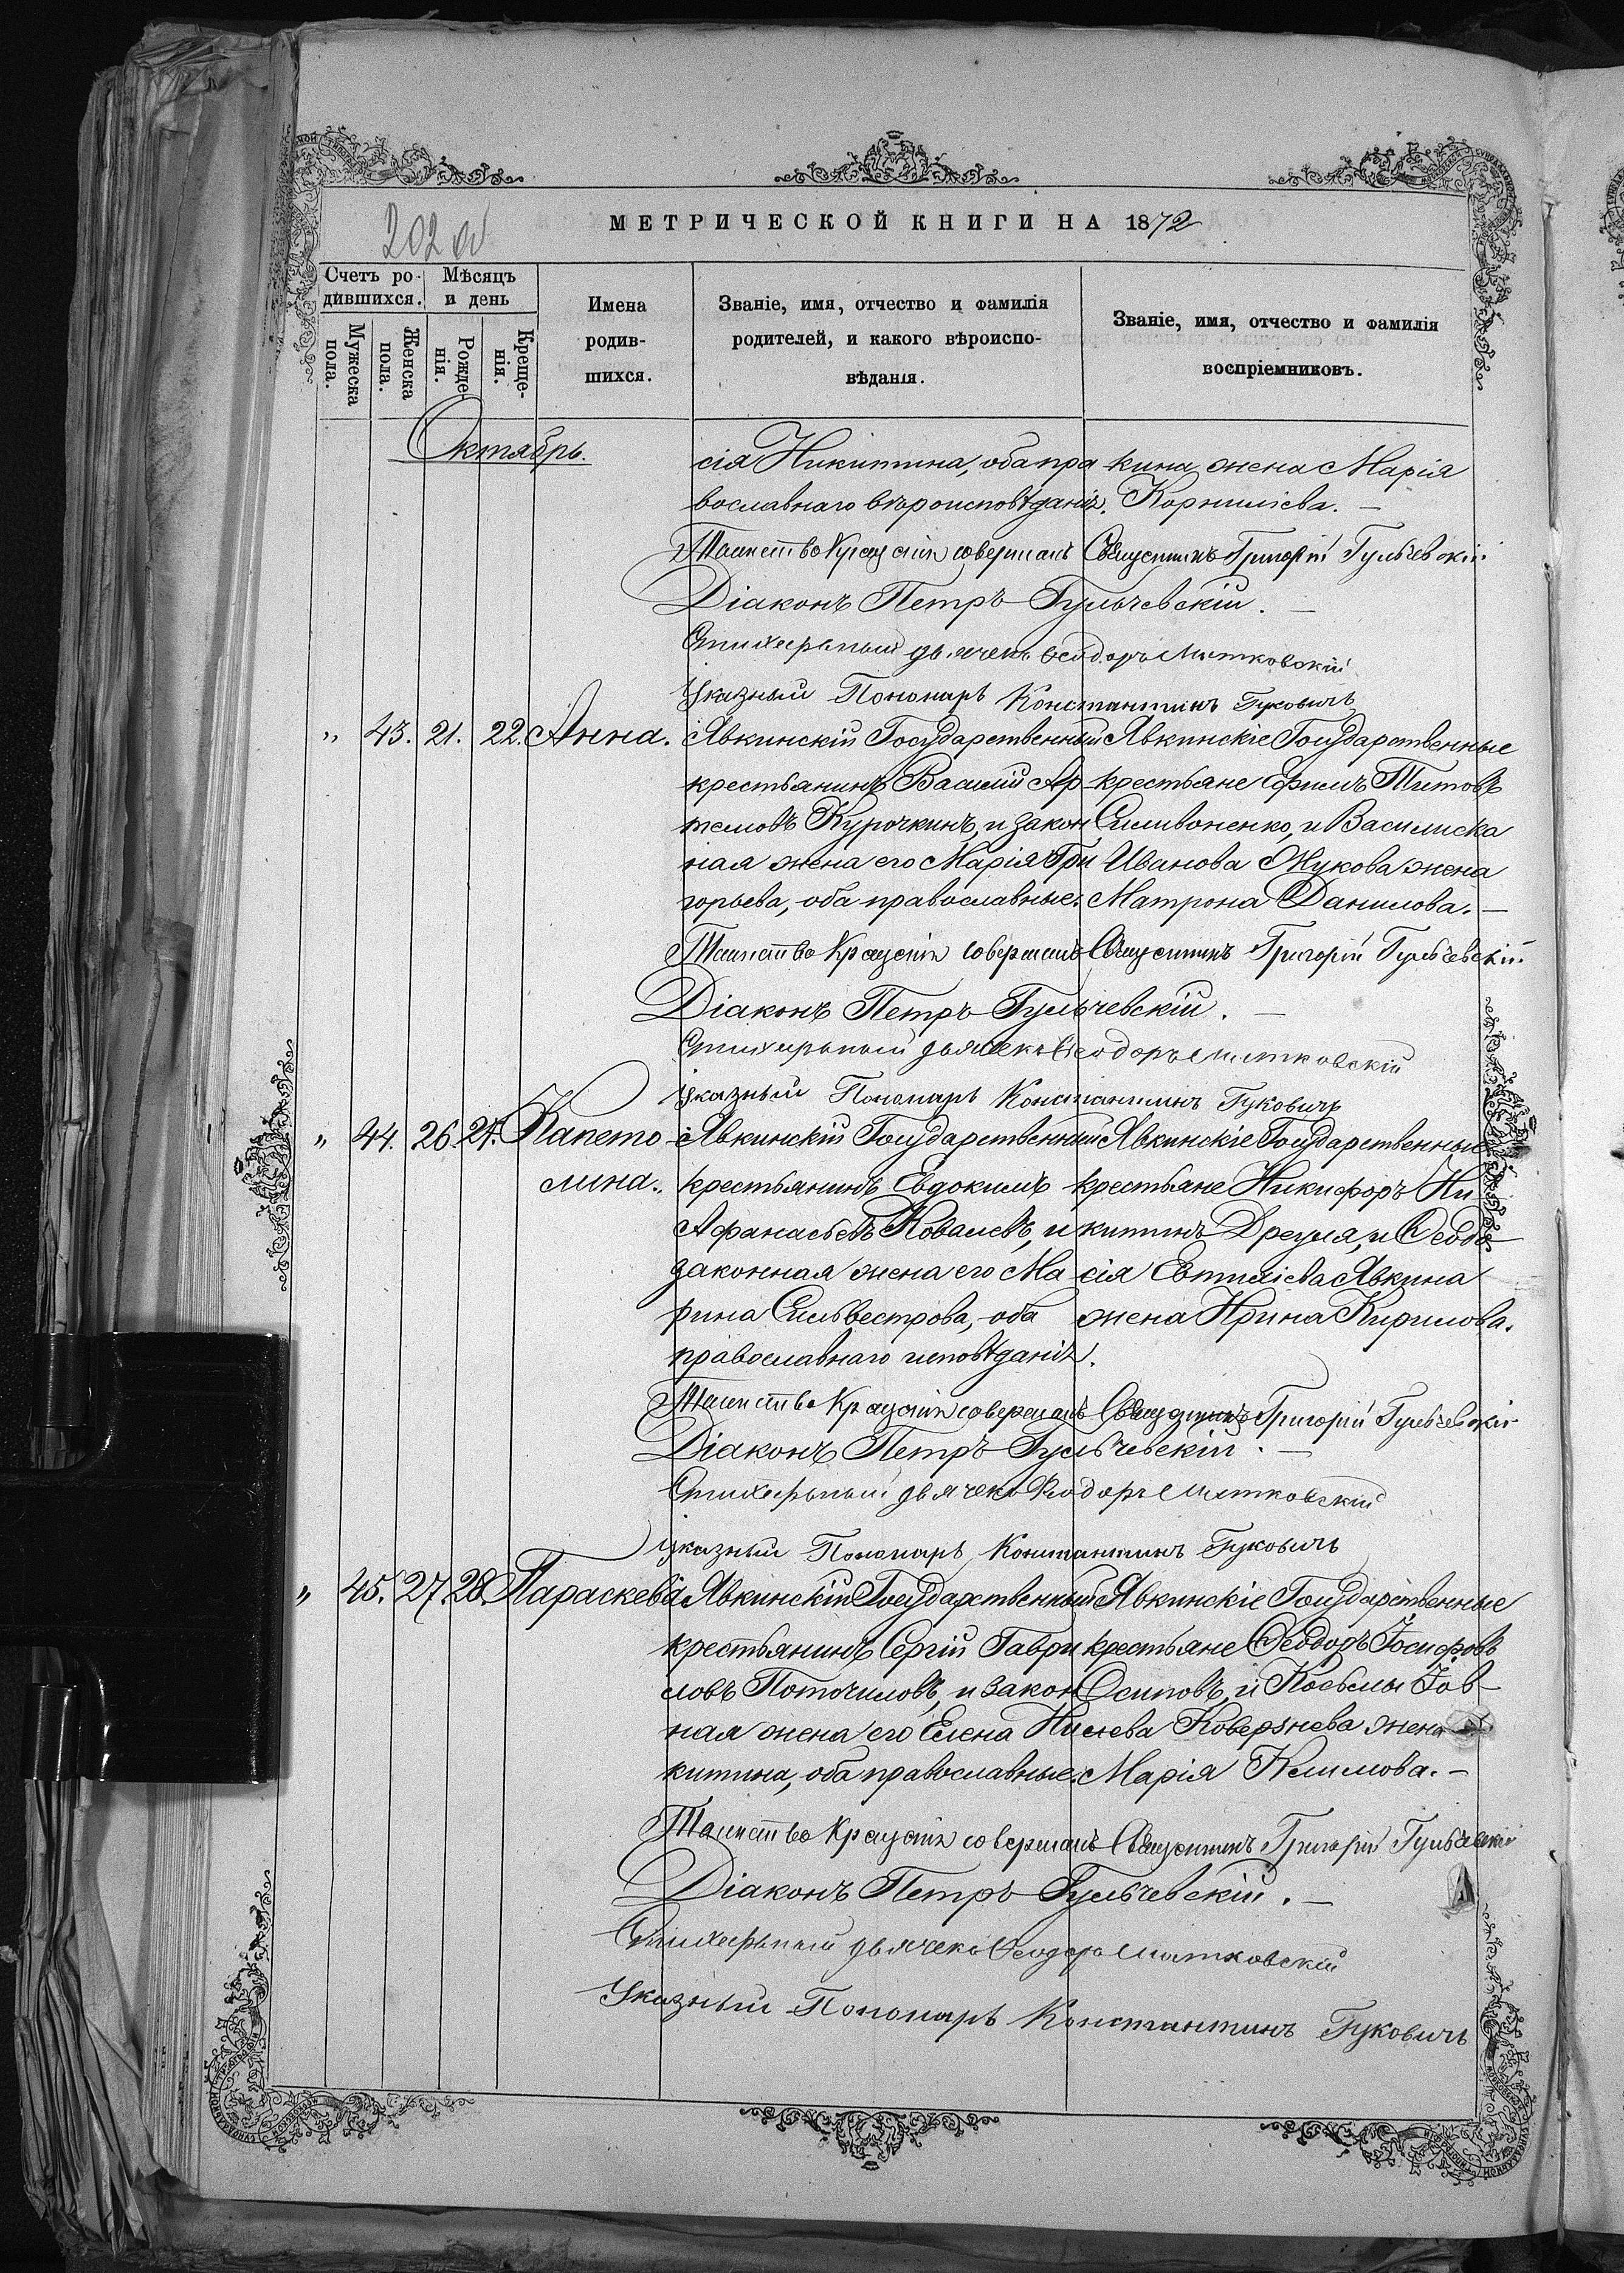 202 об
МЕТРИЧЕСКОЙ КНИГИ НА 1872
Счетъ ро-
дившихся.
Мѣсяцъ
и день
Мужеска
пола.
Женска
пола.
Рожде-
нія.
Креще-
нія.
Имена
родив-
шихся.
Званіе, имя, отчество и фамилія
родителей, и какого вѣроиспо-
вѣданія.
Званіе, имя, отчество и фамилія
воспріемниковъ.
Октябрь.
сія Никитина, оба пра
вославнаго вѣроисповѣданія.
кина жена Марія
Корниліева. —
Таинство Крещенія совершалъ Священникъ Григорій Гульчевскій
Діаконъ Петръ Гульчевскій. —
Стихарный дьячекъ Ѳеодоръ Мятковскій
Указный Пономарь Константинъ Гуковичъ
" 43. 21. 22. Анна.
Явкинскій Государственный
крестьянинъ Василій Ар-
темовъ Курочкинъ, и закон
ная жена его Марія Гри
горьева, оба православные.
Явкинскіе Государственные
крестьяне Ефимъ Титовъ
Силивоненко, и Василиска
Иванова Жукова жена
Матрона Данилова. —
Таинство Крещенія совершалъ Священникъ Григорій Гульчевскій
Діаконъ Петръ Гульчевскій. —
Стихарный дьячекъ Ѳеодоръ Мятковскій
Указный Пономарь Константинъ Гуковичъ
" 44. 26. 27. Капето
лина.
Явкинскій Государственный
крестьянинъ Евдокимъ
Афанасьевъ Ковалевъ, и
законная жена его Ма
рина Сильвестрова, оба
православнаго исповѣданія.
Явкинскіе Государственные
крестьяне Никифоръ Ни
китинъ Дрезля, и Ѳеодо
сія Евтиліева Явкина
жена Ирина Кирилова.
Таинство Крещенія совершалъ Священникъ Григорій Гульчевскій
Діаконъ Петръ Гульчевскій. —
Стихарный дьячекъ Ѳеодоръ Мятковскій
Указный Пономарь Константинъ Гуковичъ
" 45. 27. 28. Параскева
Явкинскій Государственный
крестьянинъ Сергій Гаври
ловъ Поточиловъ, и закон
ная жена его Елена Ни
китина, оба православные.
Явкинскіе Государственные
крестьяне Ѳеодоръ Іосифовъ
Осиповъ, и Косьмы Іов-
лева Коверзнева жена
Марія Климова. —
Таинство Крещенія совершалъ Священникъ Григорій Гульчевскій
Діаконъ Петръ Гульчевскій. —
Стихарный дьячекъ Ѳеодоръ Мятковскій
Указный Пономарь Константинъ Гуковичъ